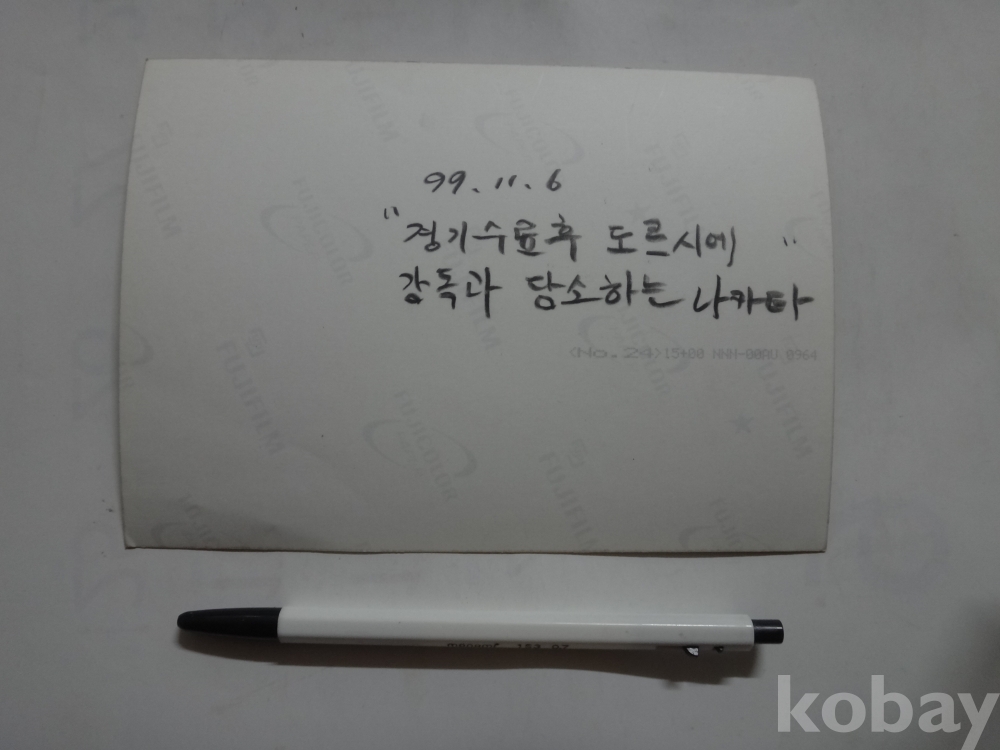 99. 11. 6
"경기수료후 도르시에 "
감독과 담소하는 나카타
<No. 24>15+00 NNN-00AU 0964
FUJIFILM
FUJICOLOR
kobay